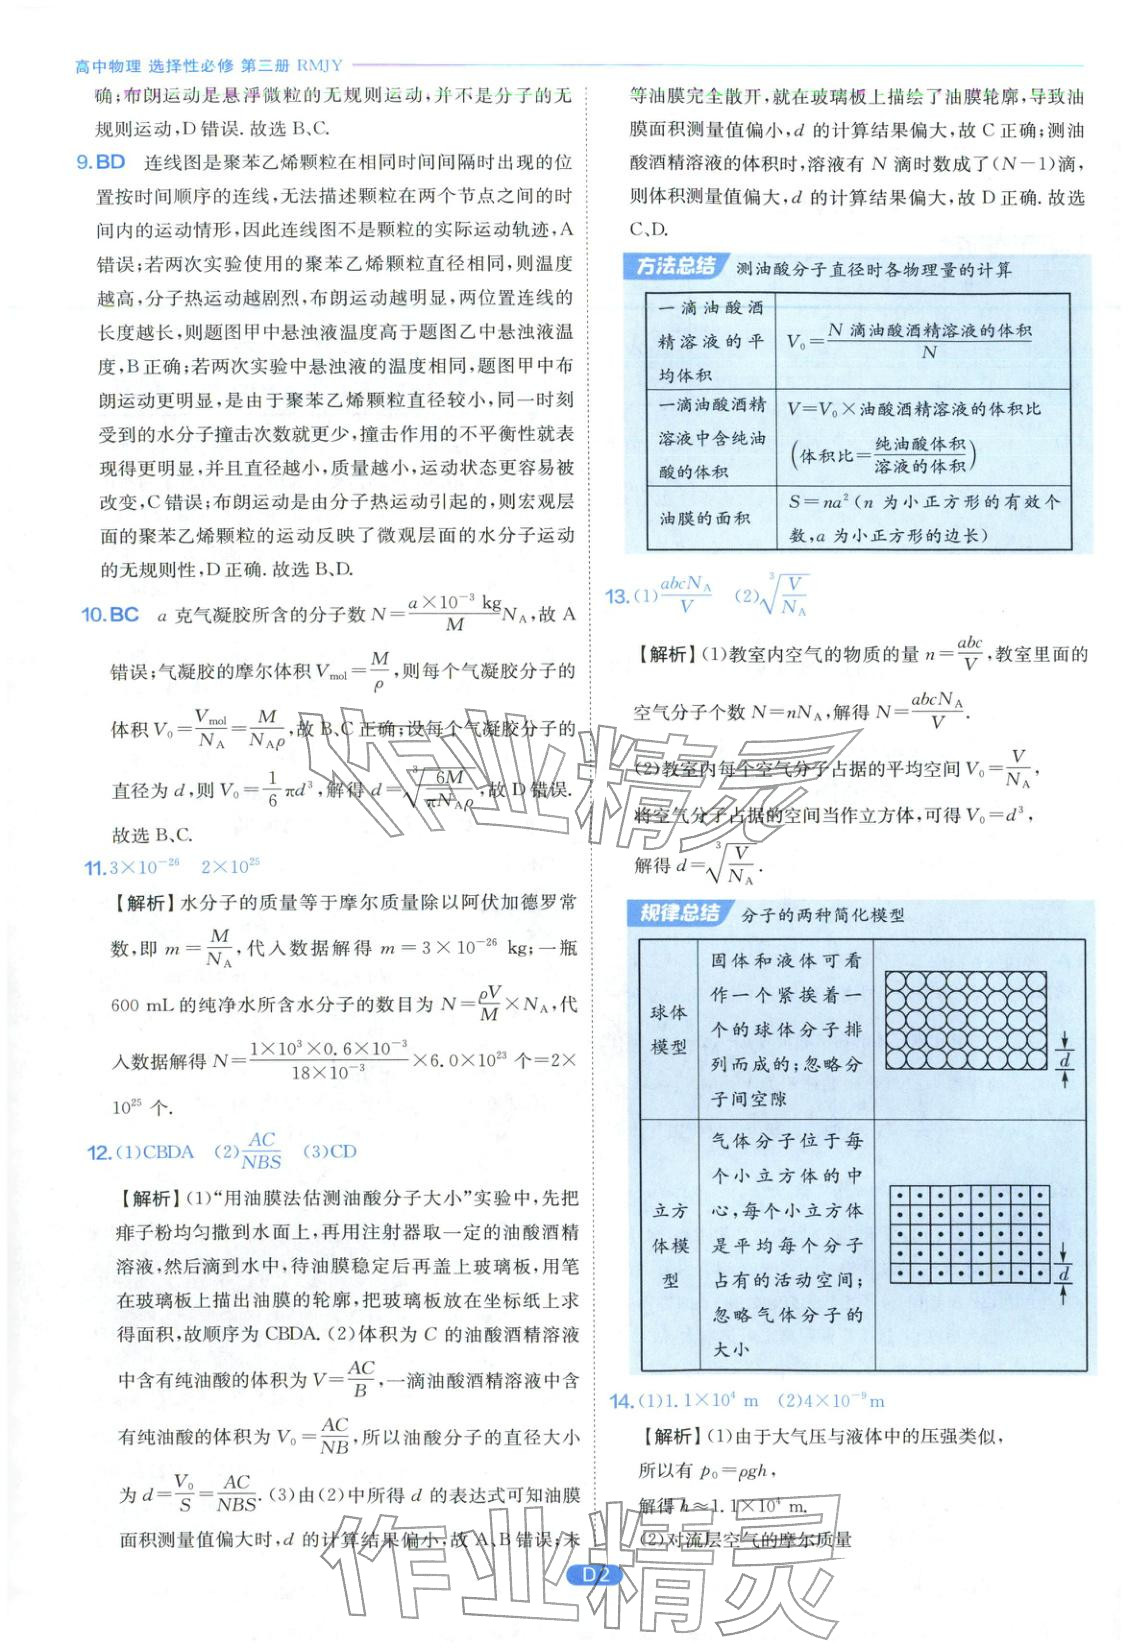 高中物理 选择性必修 第三册 RMJY
确;布朗运动是悬浮微粒的无规则运动,并不是分子的无
规则运动,D错误.故选B、C.
9.BD 连线图是聚苯乙烯颗粒在相同时间间隔时出现的位
置按时间顺序的连线,无法描述颗粒在两个节点之间的时
间内的运动情形,因此连线图不是颗粒的实际运动轨迹,A
错误;若两次实验使用的聚苯乙烯颗粒直径相同,则温度
越高,分子热运动越剧烈,布朗运动越明显,两位置连线的
长度越长,则题图甲中悬浊液温度高于题图乙中悬浊液温
度,B正确;若两次实验中悬浊液的温度相同,题图甲中布
朗运动更明显,是由于聚苯乙烯颗粒直径较小,同一时刻
受到的水分子撞击次数就更少,撞击作用的不平衡性就表
现得更明显,并且直径越小,质量越小,运动状态更容易被
改变,C错误;布朗运动是由分子热运动引起的,则宏观层
面的聚苯乙烯颗粒的运动反映了微观层面的水分子运动
的无规则性,D正确.故选B、D.
10.BC a 克气凝胶所含的分子数 N=(a×10⁻³ kg)/M N_A,故 A
错误;气凝胶的摩尔体积 V_mol=M/ρ,则每个气凝胶分子的
体积 V₀=V_mol/N_A=M/(N_Aρ),故 B、C 正确;设每个气凝胶分子的
直径为 d,则 V₀=1/6 πd³,解得 d=∛(6M/(πN_Aρ)),故 D 错误.
故选 B、C.
11.3×10⁻²⁶ 2×10²⁵
【解析】水分子的质量等于摩尔质量除以阿伏加德罗常
数,即 m=M/N_A,代入数据解得 m=3×10⁻²⁶ kg;一瓶
600 mL的纯净水所含水分子的数目为 N=ρV/M×N_A,代
入数据解得 N=(1×10³×0.6×10⁻³)/(18×10⁻³)×6.0×10²³ 个=2×
10²⁵ 个.
12.(1)CBDA (2)AC/NBS (3)CD
【解析】(1)“用油膜法估测油酸分子大小”实验中,先把
痱子粉均匀撒到水面上,再用注射器取一定的油酸酒精
溶液,然后滴到水中,待油膜稳定后再盖上玻璃板,用笔
在玻璃板上描出油膜的轮廓,把玻璃板放在坐标纸上求
得面积,故顺序为CBDA.(2)体积为 C 的油酸酒精溶液
中含有纯油酸的体积为 V=AC/B,一滴油酸酒精溶液中含
有纯油酸的体积为 V₀=AC/NB,所以油酸分子的直径大小
为 d=V₀/S=AC/NBS.(3)由(2)中所得 d 的表达式可知油膜
面积测量值偏大时,d 的计算结果偏小,故 A、B 错误;未
等油膜完全散开,就在玻璃板上描绘了油膜轮廓,导致油
膜面积测量值偏小,d 的计算结果偏大,故 C 正确;测油
酸酒精溶液的体积时,溶液有 N 滴时数成了(N-1)滴,
则体积测量值偏大,d 的计算结果偏大,故 D 正确.故选
C、D.
方法总结 测油酸分子直径时各物理量的计算
一滴油酸酒
精溶液的平
均体积
V₀=N 滴油酸酒精溶液的体积/N
一滴油酸酒精
溶液中含纯油
酸的体积
V=V₀×油酸酒精溶液的体积比
(体积比=纯油酸体积/溶液的体积)
油膜的面积
S=na²(n 为小正方形的有效个
数,a 为小正方形的边长)
13.(1)abcN_A/V (2)∛(V/N_A)
【解析】(1)教室内空气的物质的量 n=abc/V,教室里面的
空气分子个数 N=nN_A,解得 N=abcN_A/V.
(2)教室内每个空气分子占据的平均空间 V₀=V/N_A,
将空气分子占据的空间当作立方体,可得 V₀=d³,
解得 d=∛(V/N_A).
规律总结 分子的两种简化模型
球体
模型
固体和液体可看
作一个紧挨着一
个的球体分子排
列而成的;忽略分
子间空隙
d
立方
体模
型
气体分子位于每
个小立方体的中
心,每个小立方体
是平均每个分子
占有的活动空间;
忽略气体分子的
大小
d
14.(1)1.1×10⁴ m (2)4×10⁻⁹m
【解析】(1)由于大气压与液体中的压强类似,
所以有 p₀=ρgh,
解得 h≈1.1×10⁴ m.
(2)对流层空气的摩尔质量
D2
作业精灵
作业精灵